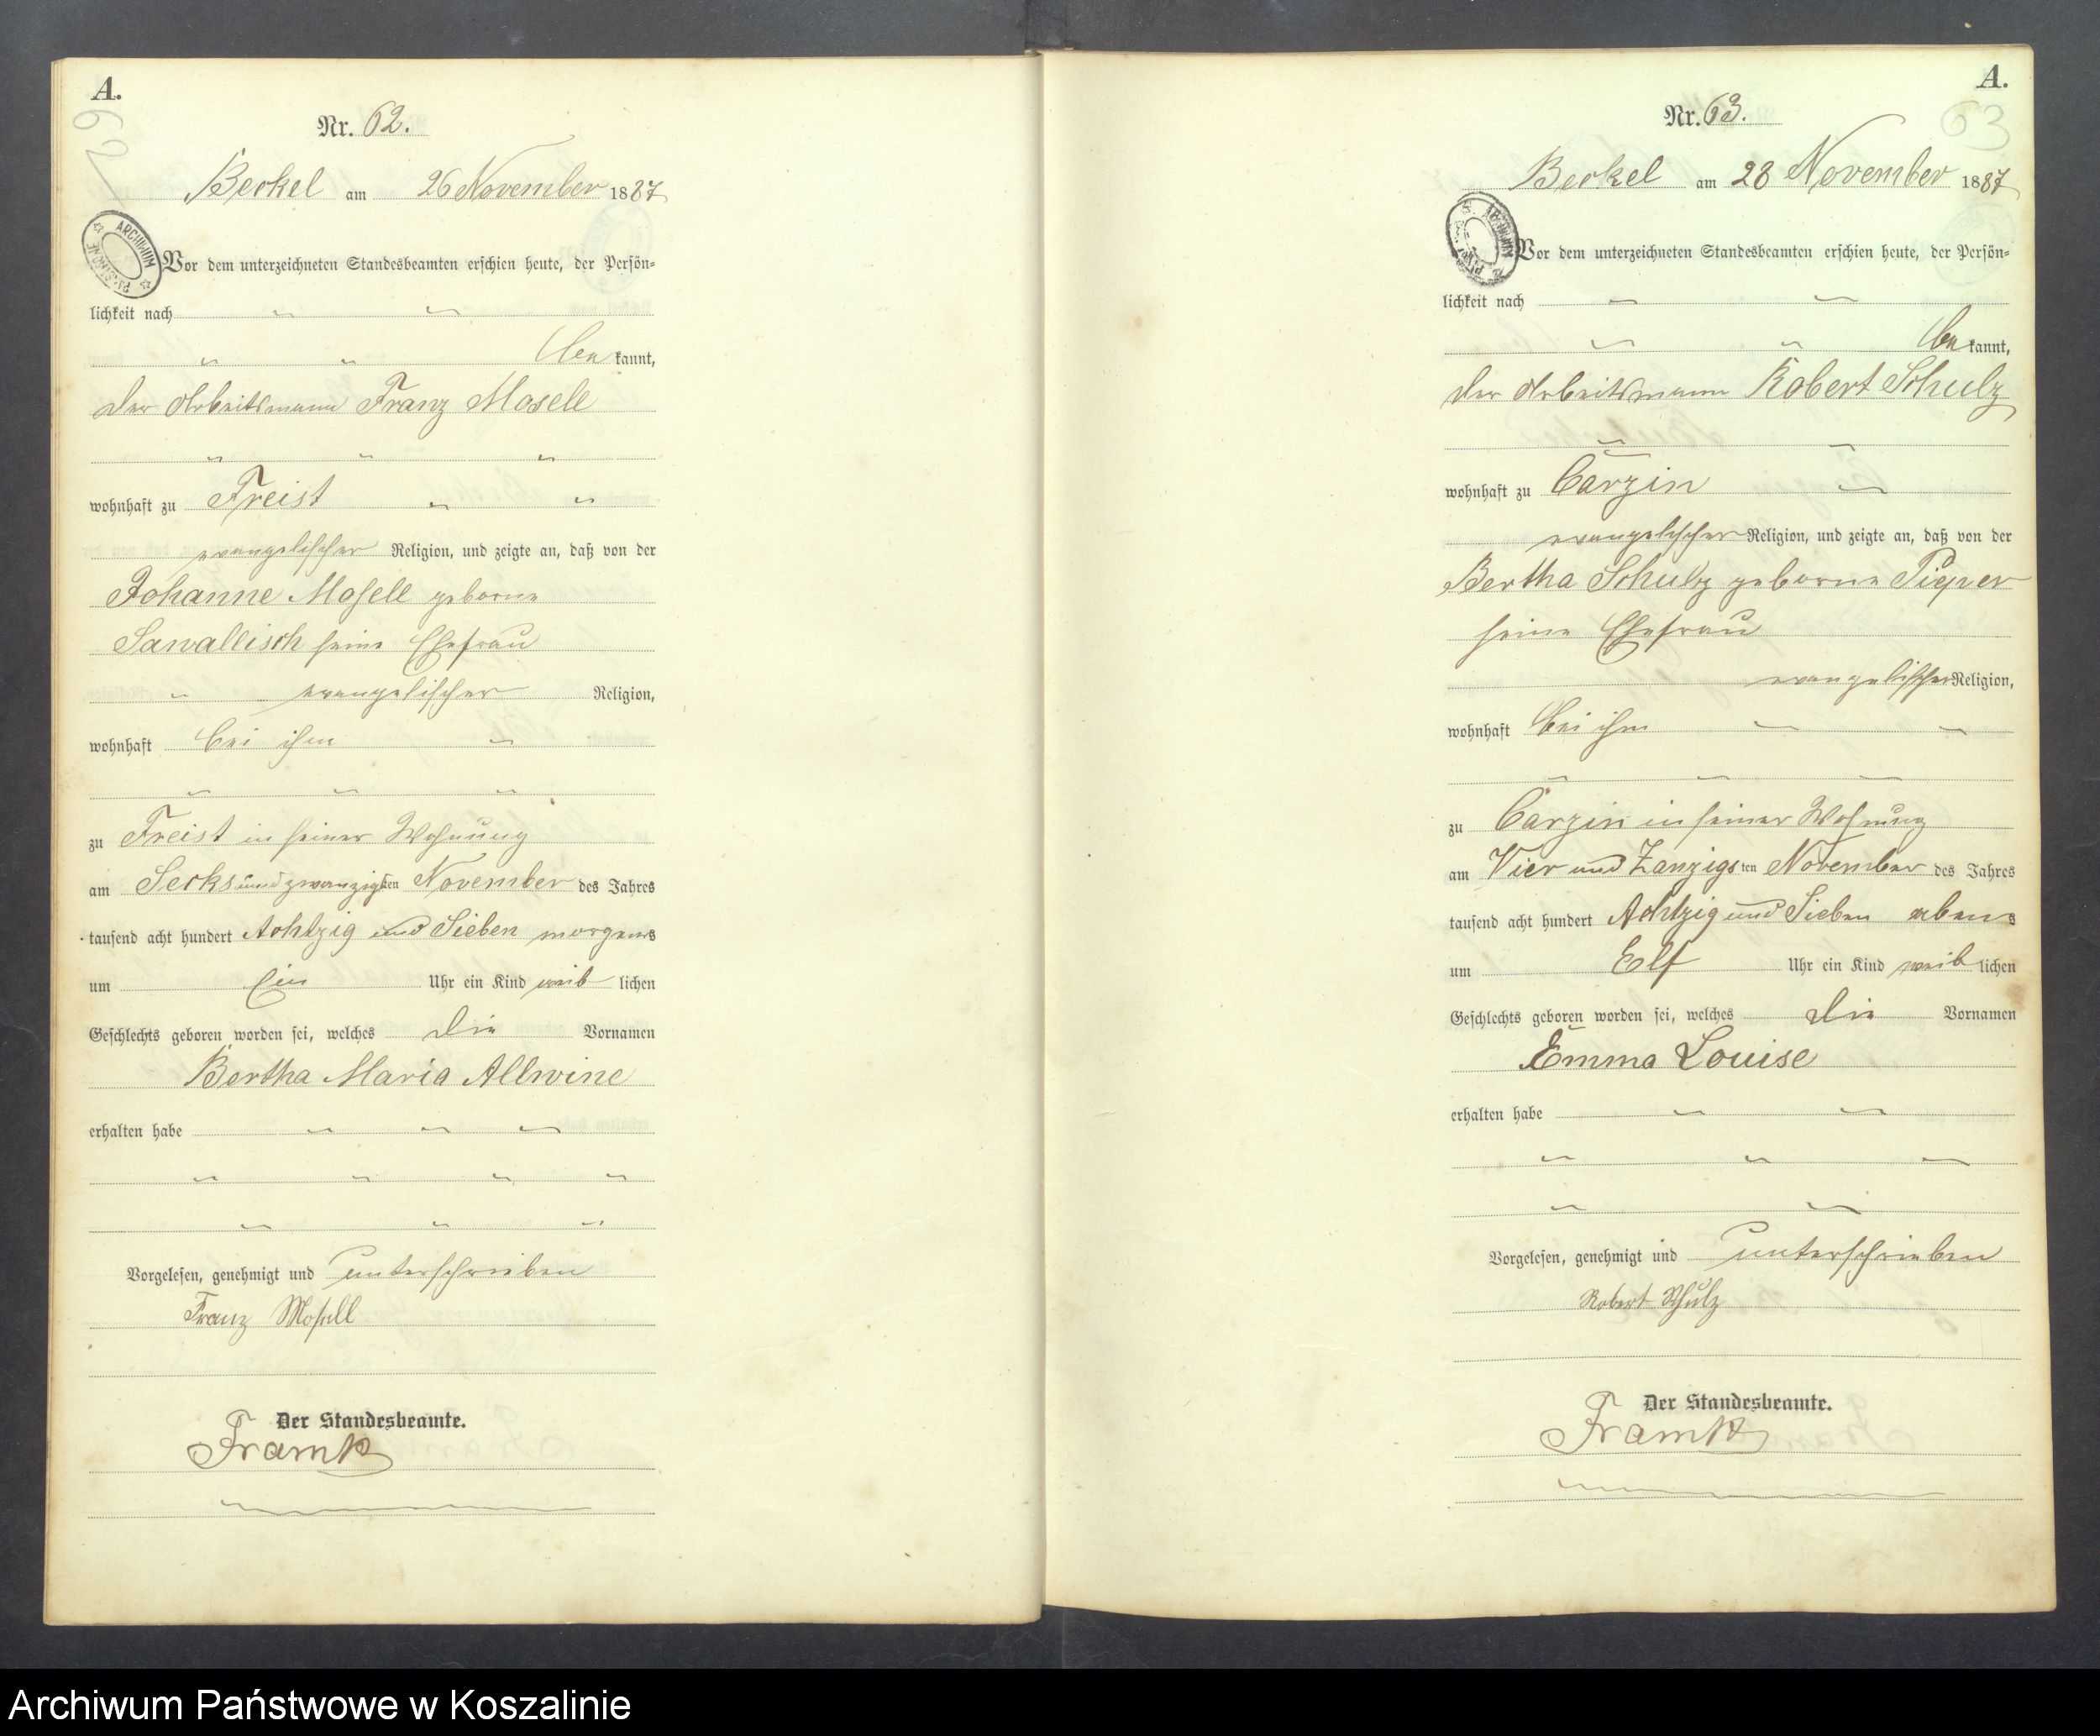 A.
62
Nr. 62.
Beckel am 26 November 1887
ARCHIWUM
Vor dem unterzeichneten Standesbeamten erschien heute, der Persön-
lichkeit nach
be kannt,
der Arbeitsmann Franz Mosell
wohnhaft zu Freist
evangelischer Religion, und zeigte an, daß von der
Johanne Mosell geborne
Sawallisch seine Ehefrau
evangelischer Religion,
wohnhaft bei ihm
zu Freist in seiner Wohnung
am Secks und zwanzigsten November des Jahres
tausend acht hundert Achtzig und Sieben morgens
um Ein Uhr ein Kind weib lichen
Geschlechts geboren worden sei, welches die Vornamen
Bertha Maria Allwine
erhalten habe
Vorgelesen, genehmigt und unterschrieben
Franz Mosell
Der Standesbeamte.
Framk
A.
63
Nr. 63.
Beckel am 28 November 1887
Vor dem unterzeichneten Standesbeamten erschien heute, der Persön-
lichkeit nach
be kannt,
der Arbeitsmann Robert Schulz
wohnhaft zu Carzin
evangelischer Religion, und zeigte an, daß von der
Bertha Schulz geborne Pieper
seine Ehefrau
evangelischer Religion,
wohnhaft bei ihm
zu Carzin in seiner Wohnung
am Vier und Zanzigsten November des Jahres
tausend acht hundert Achtzig und Sieben abens
um Elf Uhr ein Kind weib lichen
Geschlechts geboren worden sei, welches die Vornamen
Emma Louise
erhalten habe
Vorgelesen, genehmigt und unterschrieben
Robert Schulz
Der Standesbeamte.
Framk
Archiwum Państwowe w Koszalinie